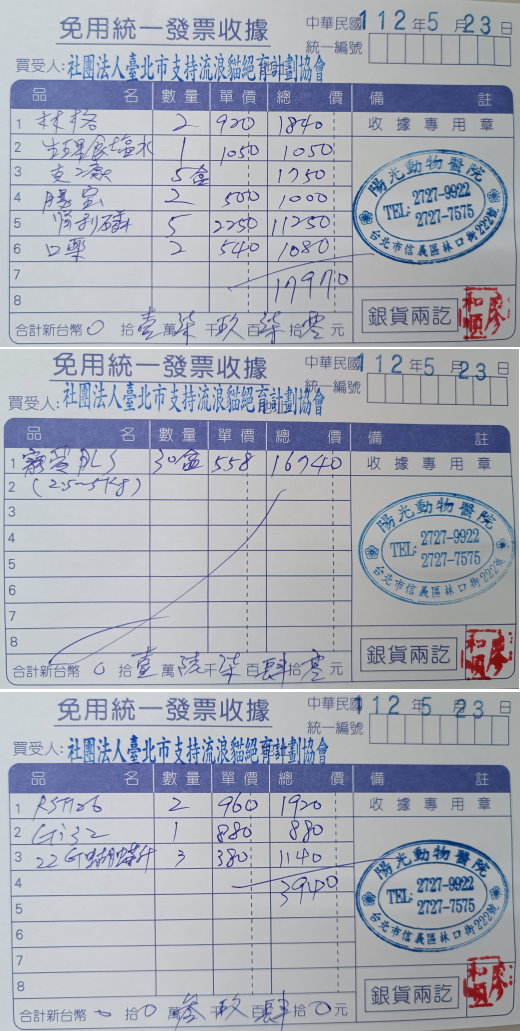 免用統一發票收據
中華民國112年5月23日
統一編號
買受人:社團法人臺北市支持流浪貓絕育計劃協會
品名 數量 單價 總價 備註
1 林格 2 920 1840 收據專用章
2 生理食鹽水 1 1050 1050
3 5盒 1750
4 2 500 1000
5 5 2250 11250
6 口樂 2 540 1080
7 17970
8
陽光動物醫院
TEL: 2727-9922
2727-7575
台北市信義區林口街222號
銀貨兩訖
合計新台幣0拾壹萬柒千玖百柒拾零元
免用統一發票收據
中華民國112年5月23日
統一編號
買受人:社團法人臺北市支持流浪貓絕育計劃協會
品名 數量 單價 總價 備註
1 30盒 558 16740 收據專用章
2 (2.5~5kg)
3
4
5
6
7
8
陽光動物醫院
TEL: 2727-9922
2727-7575
台北市信義區林口街222號
銀貨兩訖
合計新台幣0拾壹萬陸千柒百肆拾零元
免用統一發票收據
中華民國112年5月23日
統一編號
買受人:社團法人臺北市支持流浪貓絕育計劃協會
品名 數量 單價 總價 備註
1 2 960 1920 收據專用章
2 1 880 880
3 22G蝴蝶針 3 380 1140
4 3940
5
6
7
8
陽光動物醫院
TEL: 2727-9922
2727-7575
台北市信義區林口街222號
銀貨兩訖
合計新台幣 拾0萬參千玖百肆拾0元